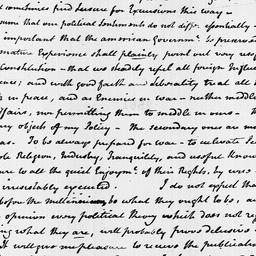 sometimes find Leisure for Excursions this way -
sume that our political Sentiments do not differ essentially
important that the American Governmt. be preserved
mature Experience shall plainly point out very usef
Constitution - that we steadily repel all foreign Influen
ence; and with good faith and liberality treat all
ds in peace, and as Enemies in war - neither meddl
ffairs, nor permitting them to meddle in ours - th
ary objects of my Policy - the secondary ones are m
as. To be always prepared for war - to cultivate Le
ote Religion, Industry, Tranquility, and useful Know
ure to all the quiet Enjoymt. of their Rights, by wise
irresistably executed. I do not expect tha
before the Millennium, be what they ought to be, an
opinion every political Theory which does not re
ng what they are, will probably prove delusive -
It will give me pleasure to receive the publicatio